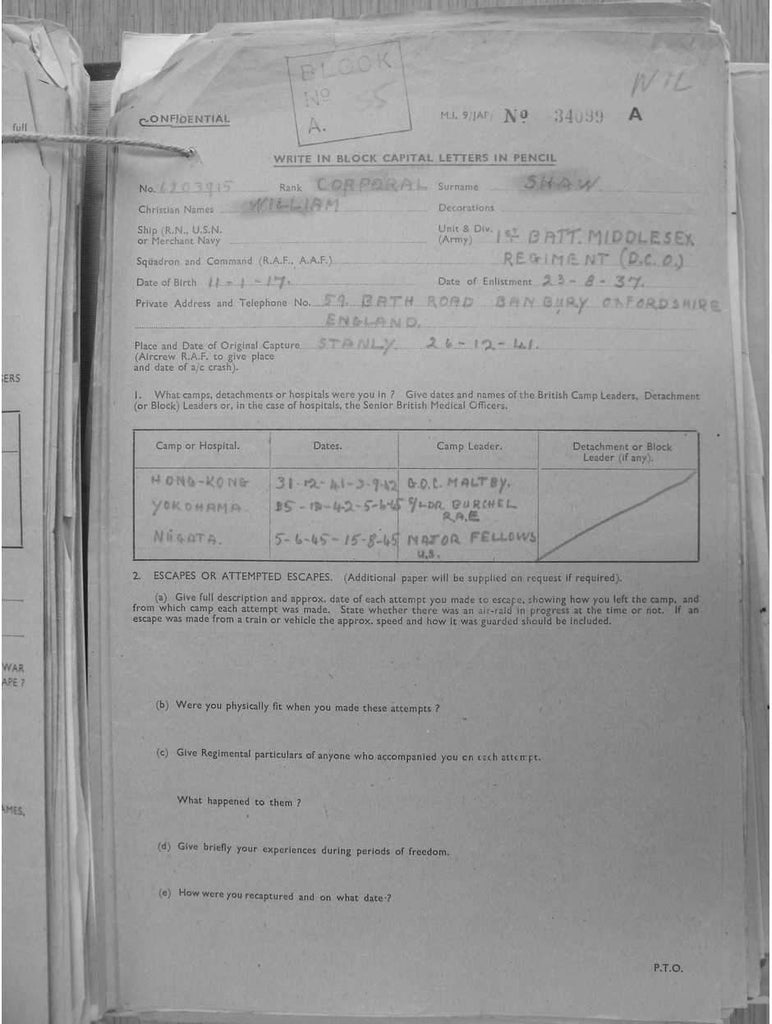 full
BLOCK
No 55
A.
WIL
CONFIDENTIAL
M.I. 9/JAP/ No 34099 A
WRITE IN BLOCK CAPITAL LETTERS IN PENCIL
No. 6203915 Rank CORPORAL Surname SHAW
Christian Names WILLIAM Decorations
Ship (R.N., U.S.N. or Merchant Navy
Unit & Div. (Army) 1ST BATT. MIDDLESEX
REGIMENT (D.C.O.)
Squadron and Command (R.A.F., A.A.F.)
Date of Birth 11-1-17. Date of Enlistment 23-8-37.
Private Address and Telephone No. 59. BATH ROAD BANBURY OXFORDSHIRE
ENGLAND.
Place and Date of Original Capture STANLY. 26-12-41.
(Aircrew R.A.F. to give place
and date of a/c crash).
ERS
1. What camps, detachments or hospitals were you in ? Give dates and names of the British Camp Leaders, Detachment
(or Block) Leaders or, in the case of hospitals, the Senior British Medical Officers.
Camp or Hospital. Dates. Camp Leader. Detachment or Block
Leader (if any).
HONG-KONG 31-12-41-3-9-42 G.O.C. MALTBY.
YOKOHAMA 5-6-45 S/LDR BURCHEL
R.A.F
NIIGATA. 5-6-45-15-8-45 MAJOR FELLOWS
U.S.
2. ESCAPES OR ATTEMPTED ESCAPES. (Additional paper will be supplied on request if required).
(a) Give full description and approx. date of each attempt you made to escape, showing how you left the camp, and
from which camp each attempt was made. State whether there was an air-raid in progress at the time or not. If an
escape was made from a train or vehicle the approx. speed and how it was guarded should be included.
WAR
APE ?
(b) Were you physically fit when you made these attempts ?
(c) Give Regimental particulars of anyone who accompanied you on each attempt.
What happened to them ?
AMES,
(d) Give briefly your experiences during periods of freedom.
(e) How were you recaptured and on what date ?
P.T.O.